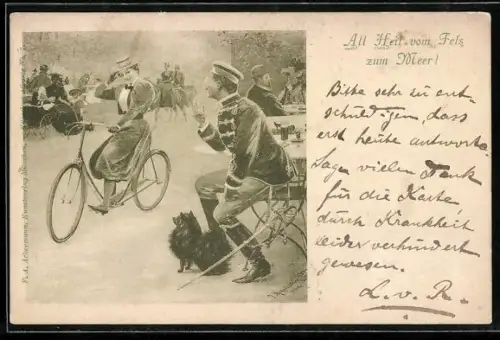 All Heil vom Fels
zum Meer!
Bitte sehr zu ent-
schuldigen, dass
erst heute antworte.
Sage vielen Dank
für die Karte
durch Krankheit
leider verhindert
gewesen.
L. v. R.
F. A. Ackermann, Kunstverlag München.